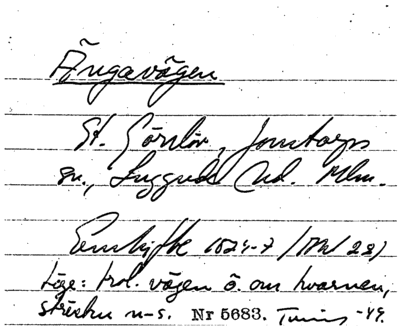 Ängavägen
St. Görslöv, Jonstorps
sn., Luggude hd. Mlm.
Enskifte 1824-7 (Akt 28)
Läge: trol. vägen ö. om kvarnen,
sträcker n-s. Nr 5683. -49.